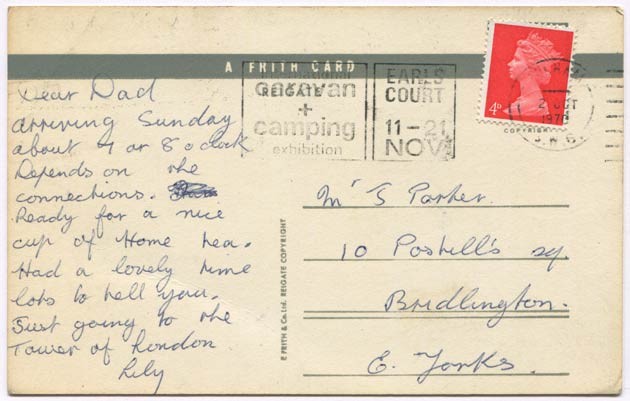 A FRITH CARD
Dear Dad
arriving Sunday
about 7 or 8 o'clock
Depends on the
connections.
Ready for a nice
cup of Home tea.
Had a lovely time
lots to tell you.
Just going to the
Tower of London
Lily
REIGATE
caravan
+
camping
exhibition
EARLS
COURT
11-21
NOV
4D
2 OCT
COPYRIGHT
F. FRITH & Co. Ltd. REIGATE COPYRIGHT
Mr S Parker.
10 Postill's sq.
Bridlington.
E. Yorks.